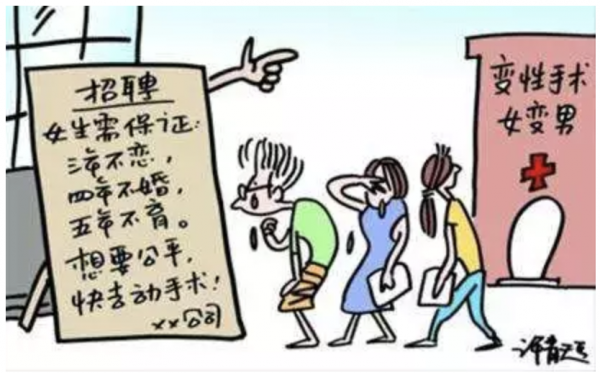 招聘
女生需保证:
三年不恋,
四年不婚,
五年不育。
想要公平,
快去动手术!
××公司
变性手术
女变男